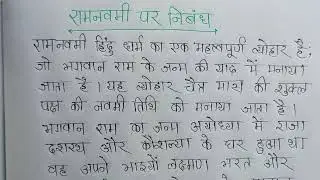 रामनवमी पर निबंध
रामनवमी हिंदु धर्म का एक महत्वपूर्ण त्योहार है;
जो भगवान राम के जन्म की याद में मनाया
जाता है। यह त्योहार चैत्र मास की शुक्ल
पक्ष की नवमी तिथि को मनाया जाता है।
भगवान राम का जन्म अयोध्या में राजा
दशरथ और कौशल्या के घर हुआ था
वह अपने भाइयों लक्ष्मण भरत और